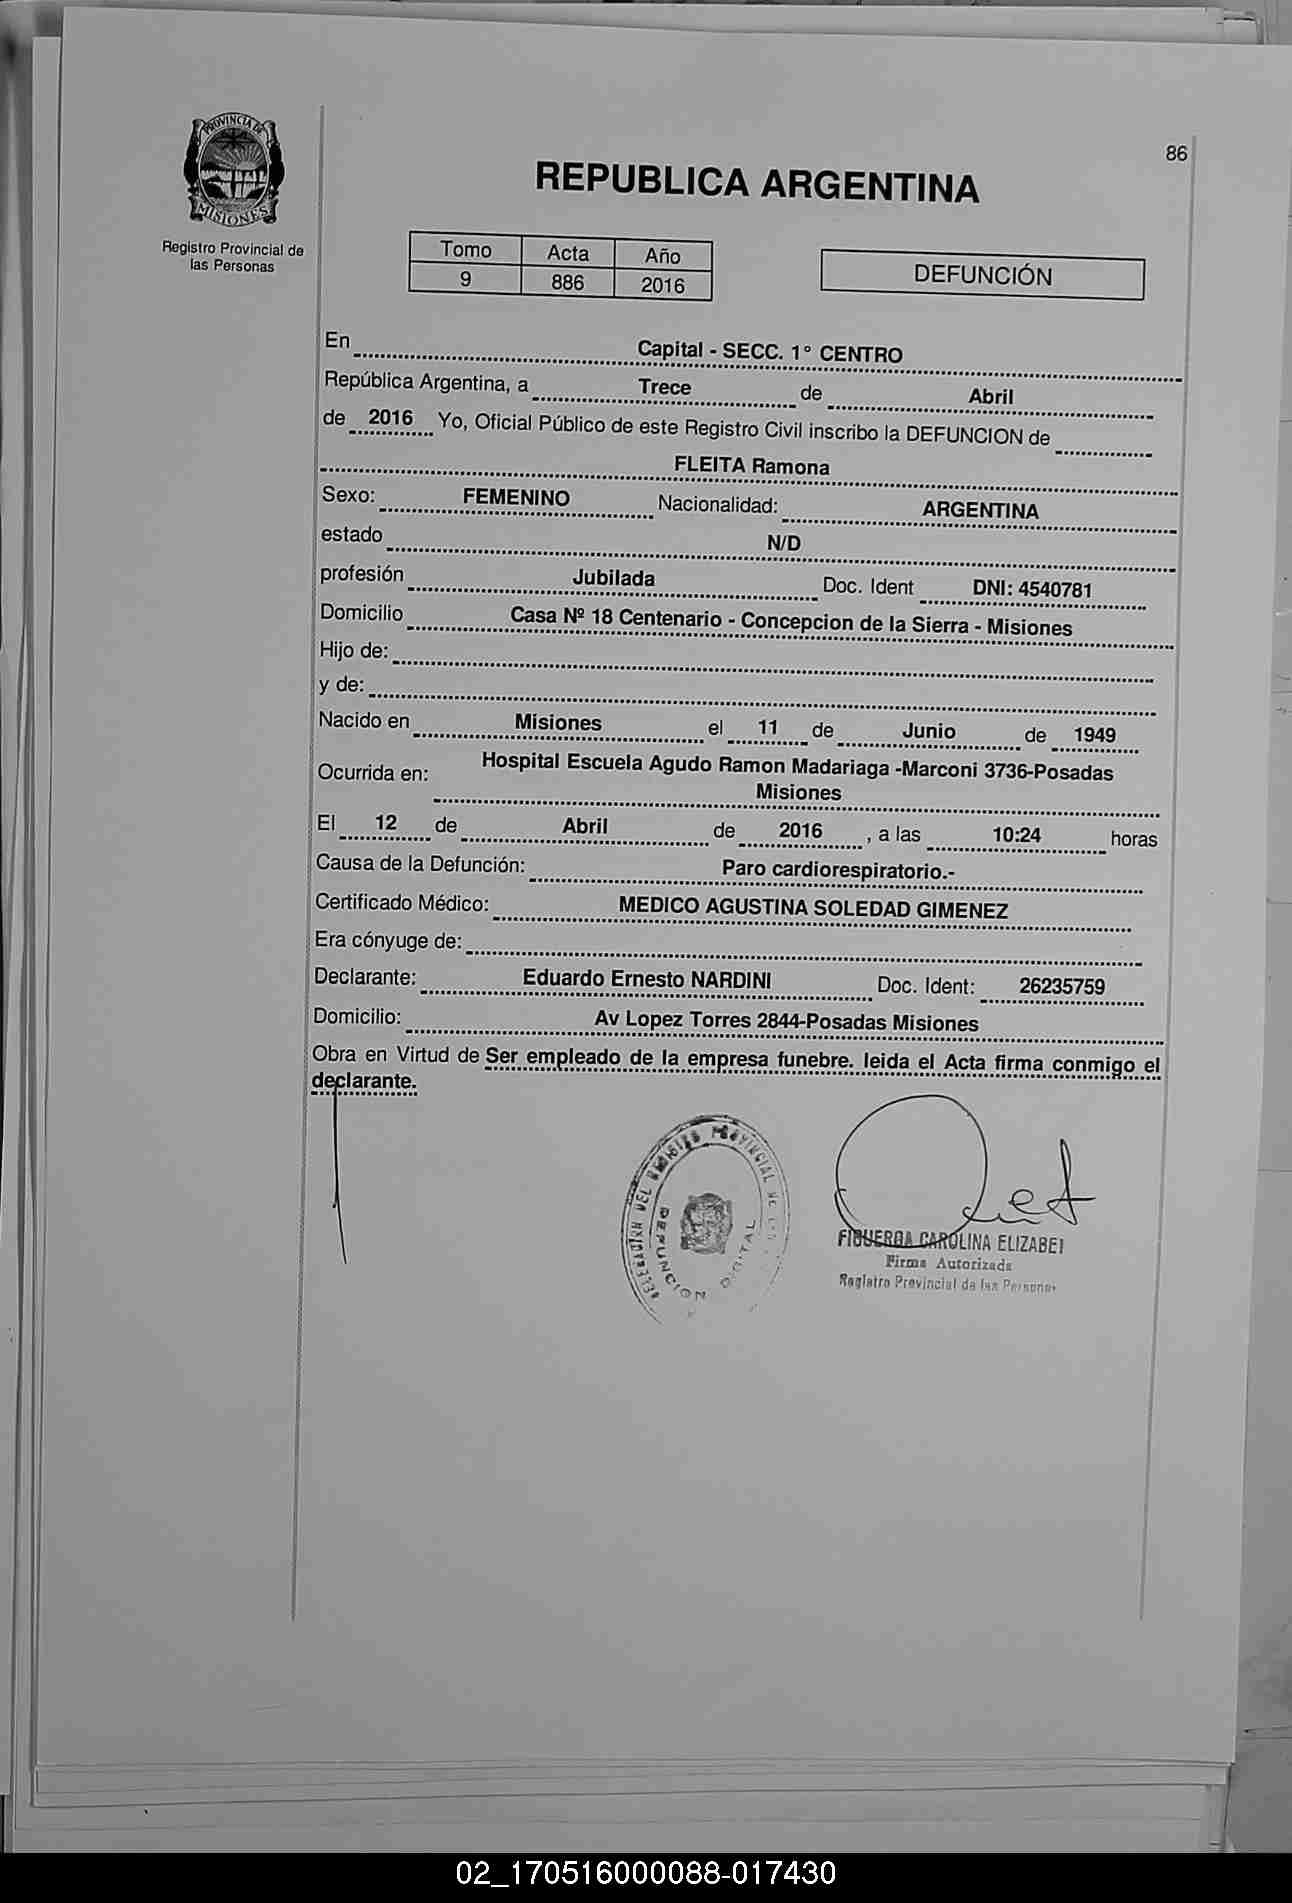 86
PROVINCIA DE
MISIONES
Registro Provincial de
las Personas
REPUBLICA ARGENTINA
Tomo Acta Año
9 886 2016
DEFUNCIÓN
En Capital - SECC. 1° CENTRO
República Argentina, a Trece de Abril
de 2016 Yo, Oficial Público de este Registro Civil inscribo la DEFUNCION de
FLEITA Ramona
Sexo: FEMENINO Nacionalidad: ARGENTINA
estado N/D
profesión Jubilada Doc. Ident DNI: 4540781
Domicilio Casa Nº 18 Centenario - Concepcion de la Sierra - Misiones
Hijo de:
y de:
Nacido en Misiones el 11 de Junio de 1949
Ocurrida en: Hospital Escuela Agudo Ramon Madariaga -Marconi 3736-Posadas
Misiones
El 12 de Abril de 2016 , a las 10:24 horas
Causa de la Defunción: Paro cardiorespiratorio.-
Certificado Médico: MEDICO AGUSTINA SOLEDAD GIMENEZ
Era cónyuge de:
Declarante: Eduardo Ernesto NARDINI Doc. Ident: 26235759
Domicilio: Av Lopez Torres 2844-Posadas Misiones
Obra en Virtud de Ser empleado de la empresa funebre. leida el Acta firma conmigo el
declarante.
PROVINCIAL
DEFUNCION DIGITAL
FIGUEROA CAROLINA ELIZABET
Firma Autorizada
Registro Provincial de las Personas
02_170516000088-017430